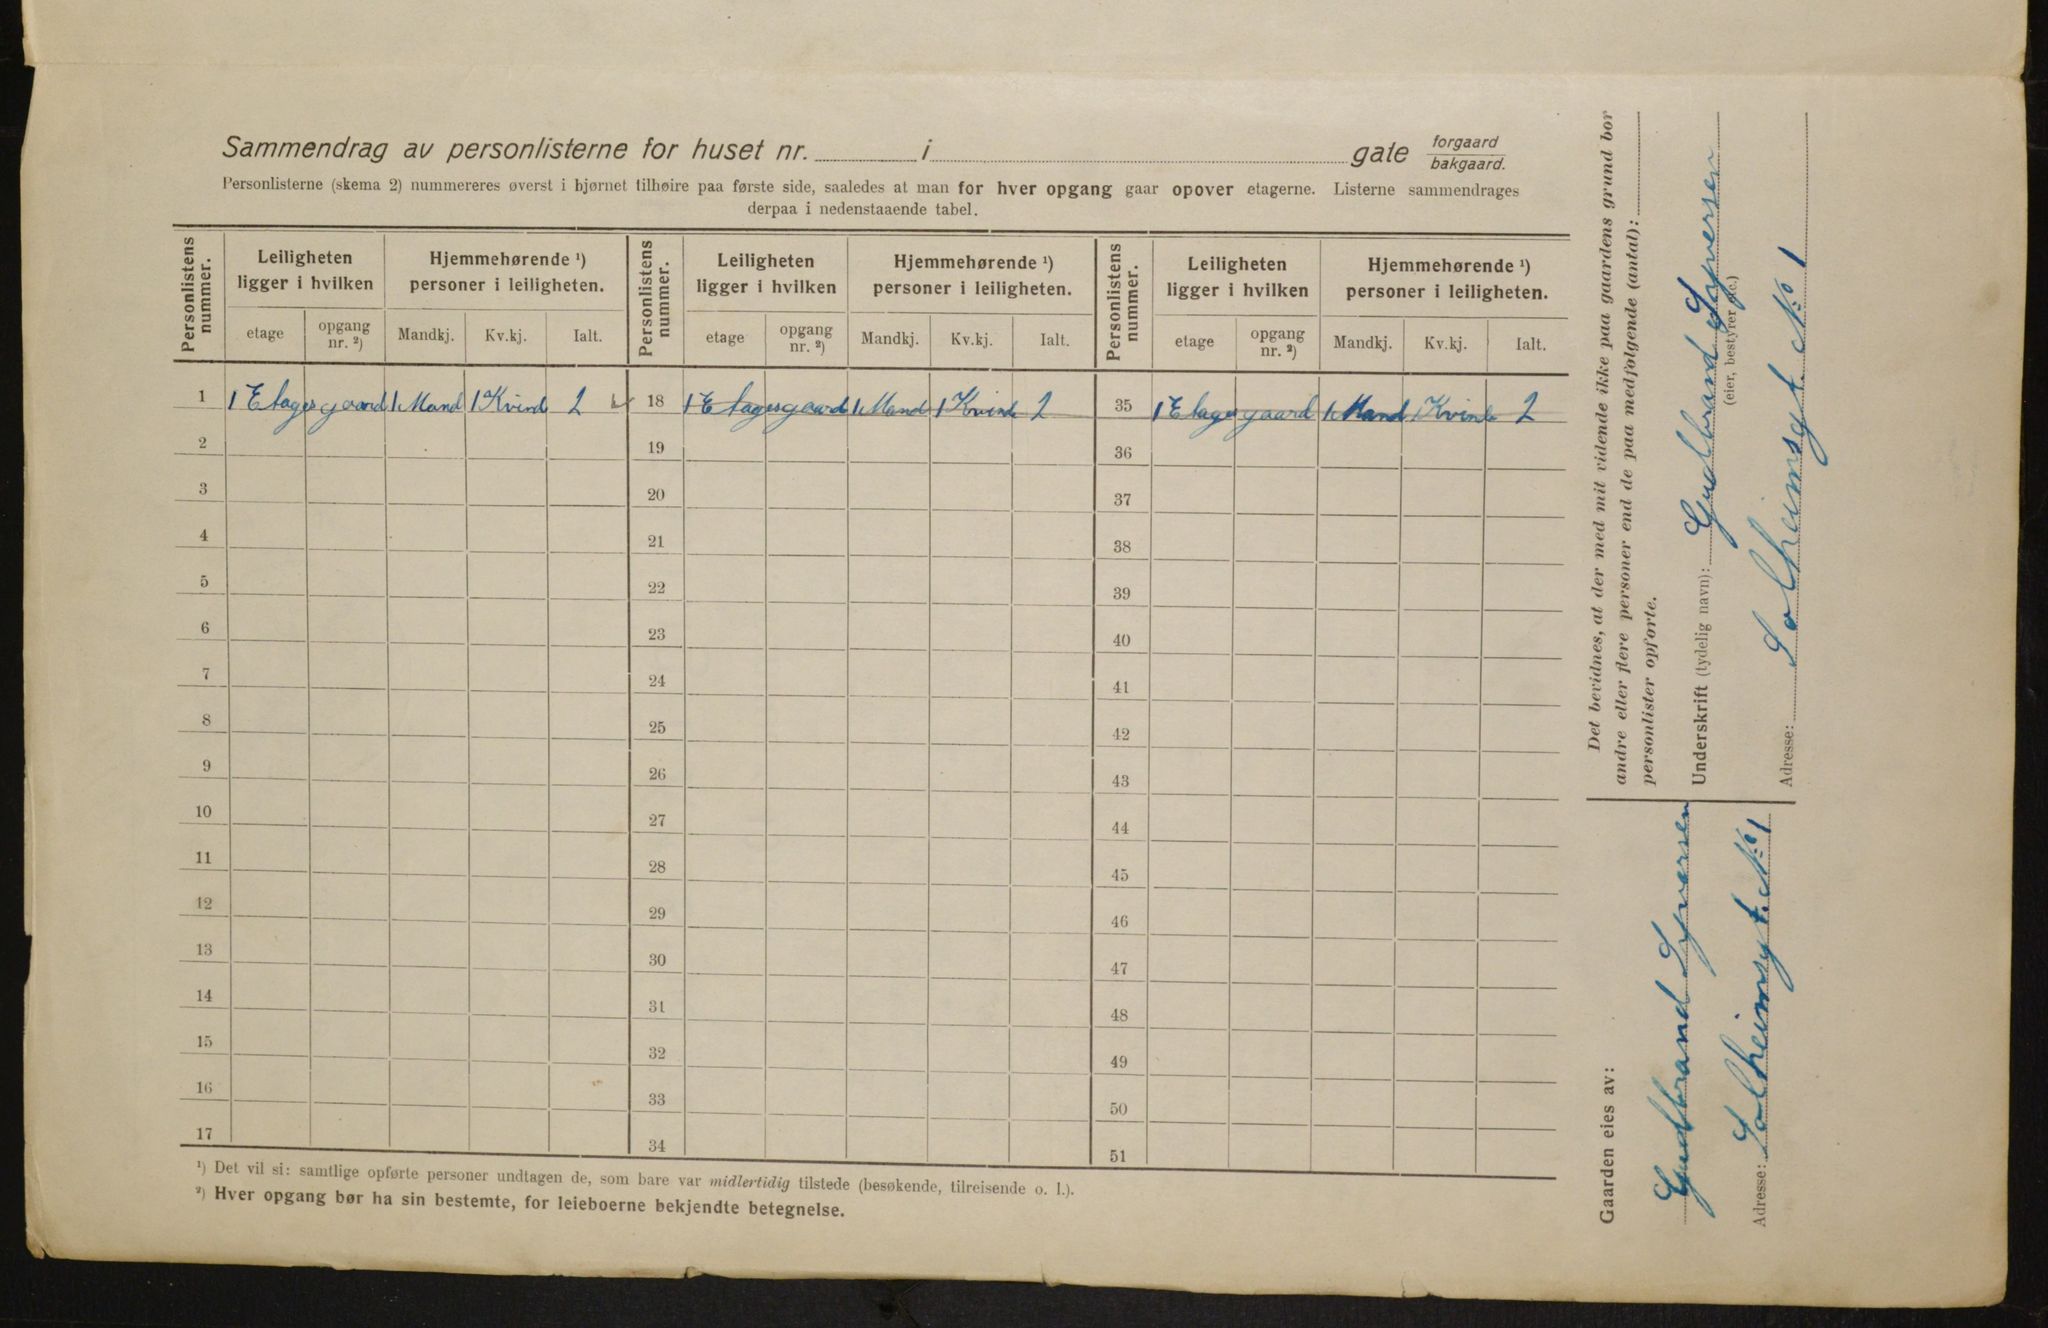 Sammendrag av personlisterne for huset nr. i gate forgaard bakgaard.
Personlisterne (skema 2) nummereres øverst i hjørnet tilhøire paa første side, saaledes at man for hver opgang gaar opover etagerne. Listerne sammendrages
derpaa i nedenstaaende tabel.
Personlistens nummer. Leiligheten ligger i hvilken Hjemmehørende ¹) personer i leiligheten. Personlistens nummer. Leiligheten ligger i hvilken Hjemmehørende ¹) personer i leiligheten. Personlistens nummer. Leiligheten ligger i hvilken Hjemmehørende ¹) personer i leiligheten.
etage opgang nr. ²) Mandkj. Kv.kj. Ialt. etage opgang nr. ²) Mandkj. Kv.kj. Ialt. etage opgang nr. ²) Mandkj. Kv.kj. Ialt.
1 1 Etagesgaard 1 Mand 1 Kvind 2 18 1 Etagesgaard 1 Mand 1 Kvind 2 35 1 Etagesgaard 1 Mand 1 Kvind 2
2 19 36
3 20 37
4 21 38
5 22 39
6 23 40
7 24 41
8 25 42
9 26 43
10 27 44
11 28 45
12 29 46
13 30 47
14 31 48
15 32 49
16 33 50
17 34 51
¹) Det vil si: samtlige opførte personer undtagen de, som bare var midlertidig tilstede (besøkende, tilreisende o. l.).
²) Hver opgang bør ha sin bestemte, for leieboerne bekjendte betegnelse.
Det bevidnes, at der med mit vidende ikke paa gaardens grund bor
andre eller flere personer end de paa medfølgende (antal):
personlister opførte.
Underskrift (tydelig navn): Gudbrand Syversen
(eier, bestyrer etc.)
Adresse: Solheimsgt. No 1
Gaarden eies av:
Gudbrand Syversen
Adresse: Solheimsgt. No 1